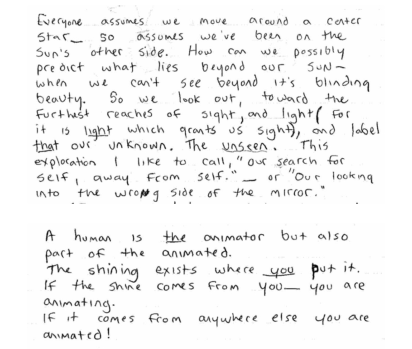 Everyone assumes we move around a center
star_ so assumes we've been on the
Sun's other side. How can we possibly
predict what lies beyond our SUN-
when we can't see beyond it's blinding
beauty. So we look out, toward the
furthest reaches of sight, and light (for
it is light which grants us sight), and label
that our unknown. The unseen. This
exploration I like to call, "our search for
self, away from self." _ or "Our looking
into the wrong side of the mirror."
A human is the animator but also
part of the animated.
The shining exists where you put it.
If the shine comes from you_ you are
animating.
If it comes from anywhere else you are
animated!